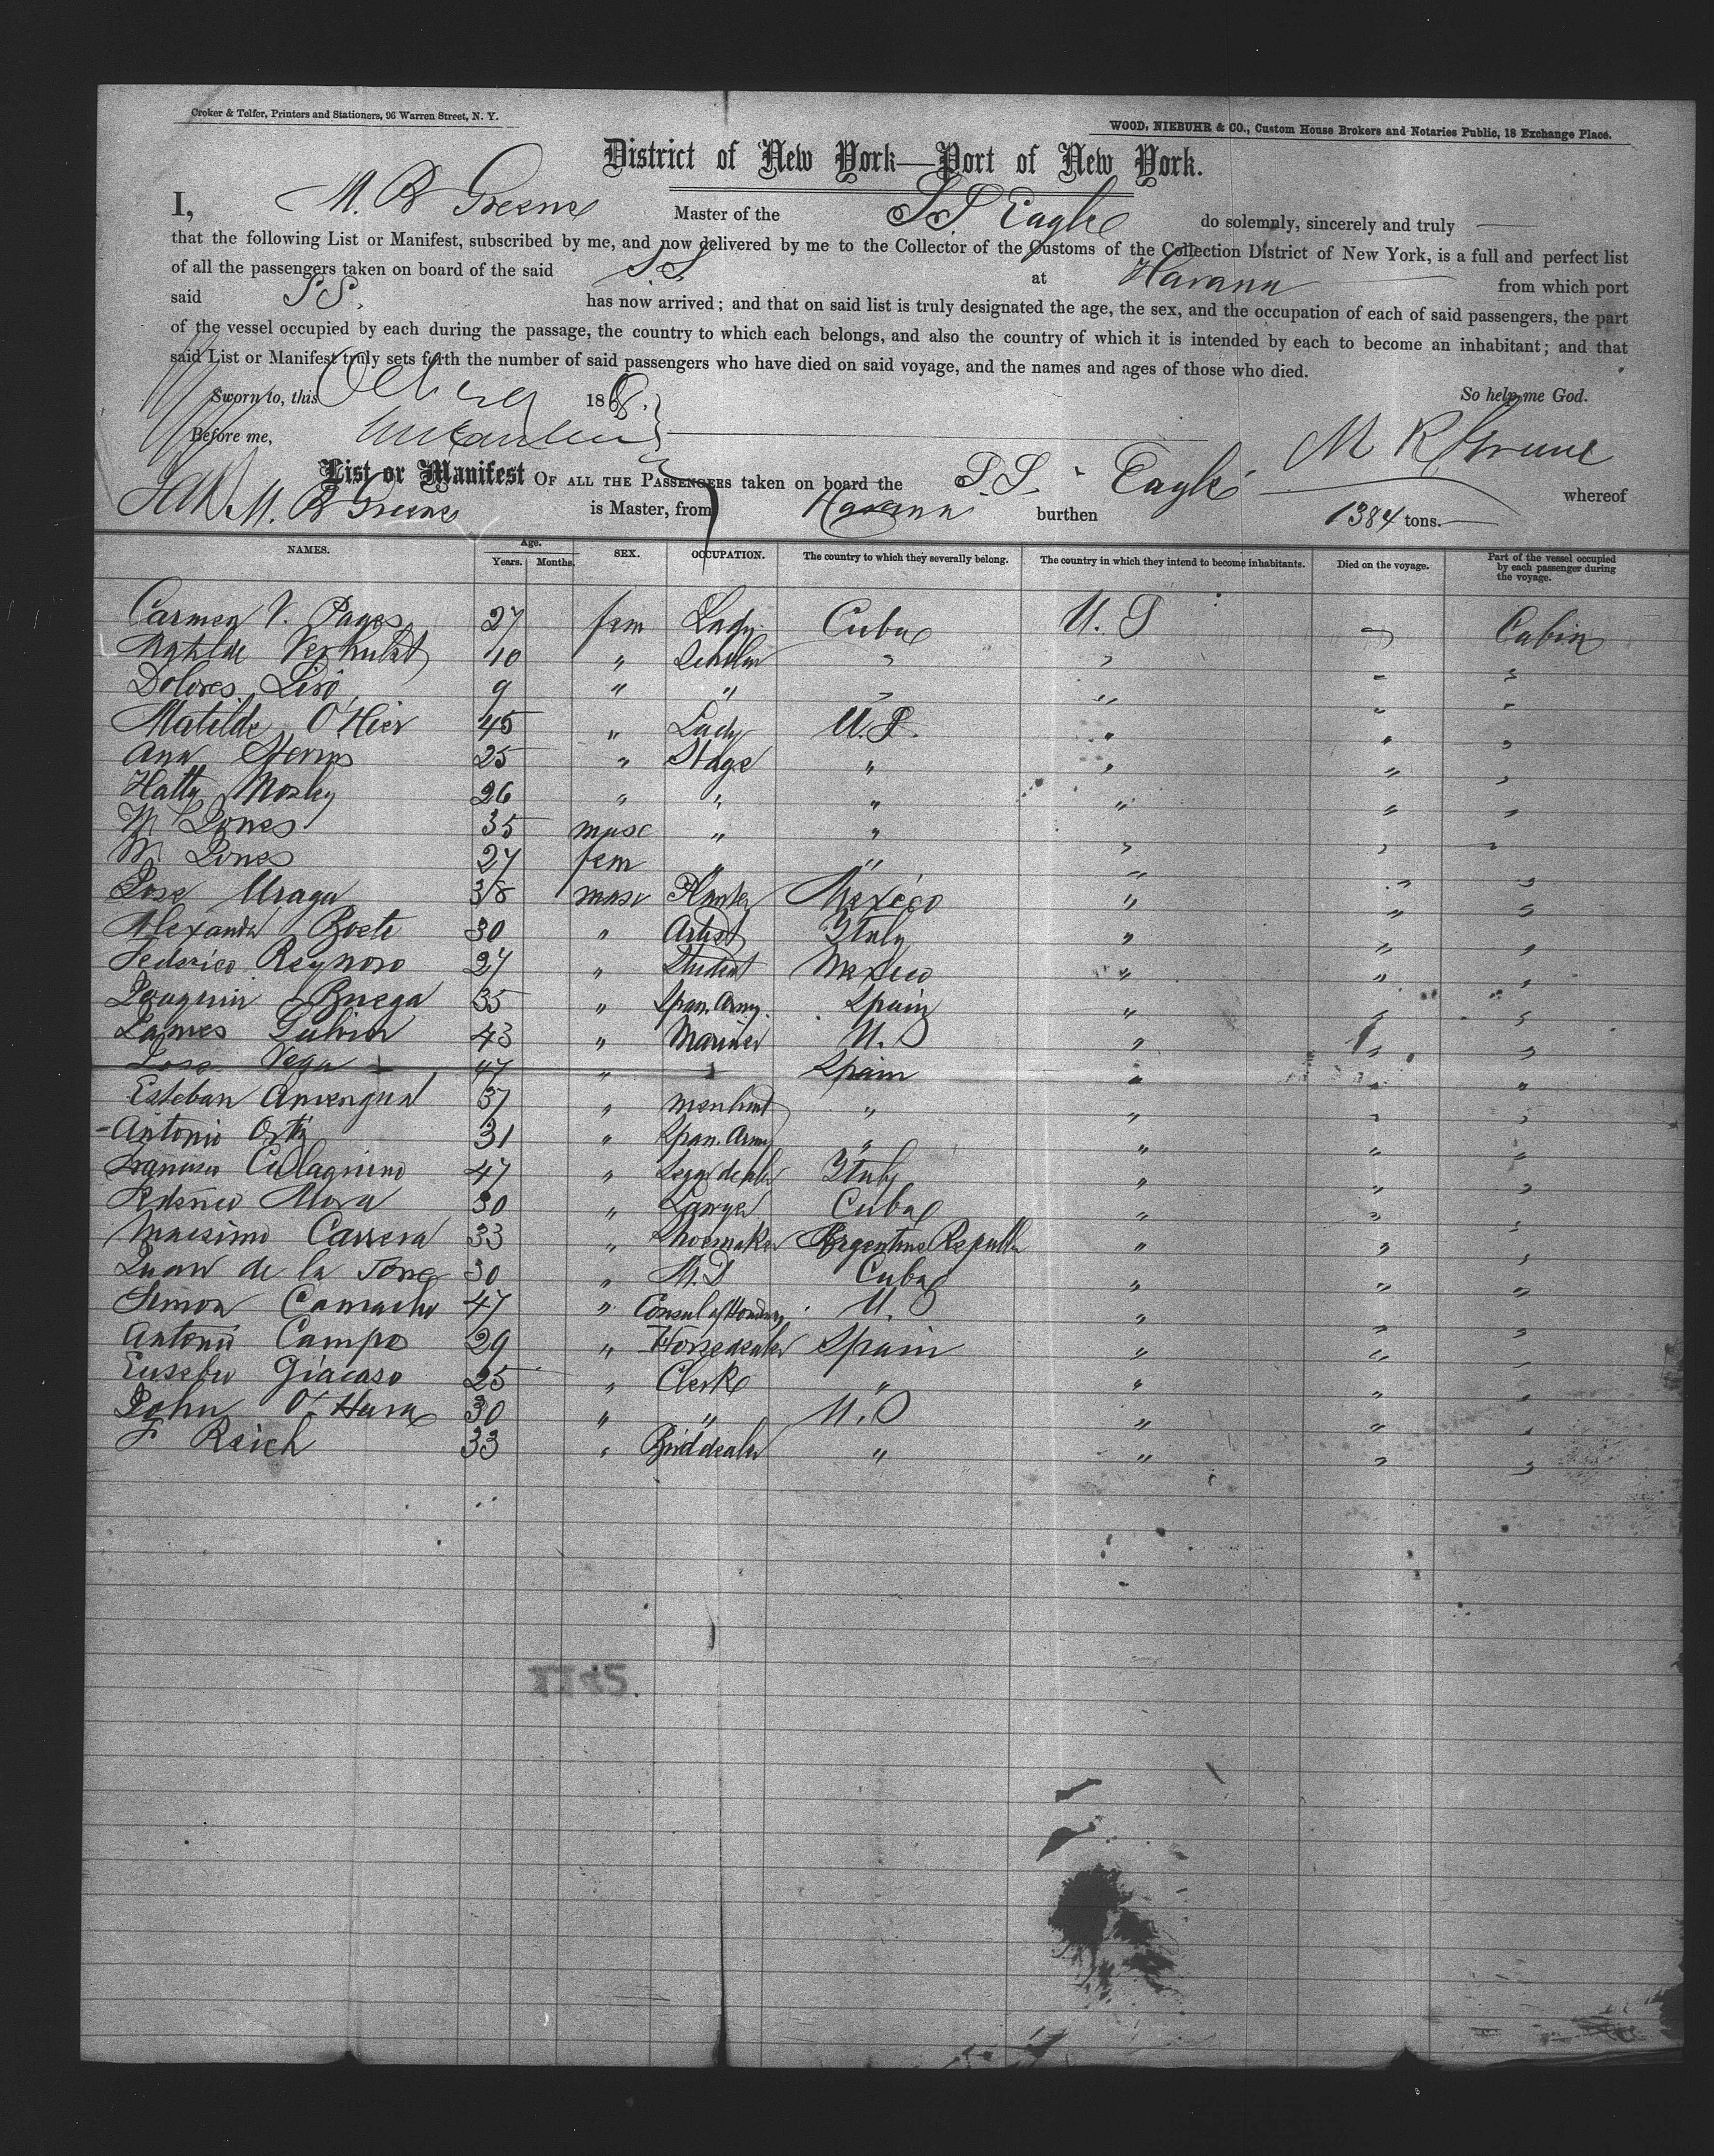 Croker & Telfer, Printers and Stationers, 96 Warren Street, N. Y.
WOOD, NIEBUHR & CO., Custom House Brokers and Notaries Public, 18 Exchange Place.
District of New York—Port of New York.
I, M. R Greene Master of the SS Eagle do solemnly, sincerely and truly
that the following List or Manifest, subscribed by me, and now delivered by me to the Collector of the Customs of the Collection District of New York, is a full and perfect list
of all the passengers taken on board of the said SS at Havana from which port
said SS. has now arrived; and that on said list is truly designated the age, the sex, and the occupation of each of said passengers, the part
of the vessel occupied by each during the passage, the country to which each belongs, and also the country of which it is intended by each to become an inhabitant; and that
said List or Manifest truly sets forth the number of said passengers who have died on said voyage, and the names and ages of those who died.
Sworn to, this 1868. So help me God.
Before me, M R Greene
List or Manifest OF ALL THE PASSENGERS taken on board the S.S. Eagle whereof
M. R Greene is Master, from Havana burthen 1384 tons.
NAMES. Age. Years. Months. SEX. OCCUPATION. The country to which they severally belong. The country in which they intend to become inhabitants. Died on the voyage. Part of the vessel occupied by each passenger during the voyage.
Carmen V. Pages 27 fem Lady Cuba U. S Cabin
Matilde Verhulst 10 " Scholar " " " "
Dolores Siro 9 " " " " " "
Matilde O'Hier 45 " Lady U. S. " " "
Ann 25 " Stage " " " "
Hatty Mosley 26 " " " " " "
W Jones 35 masc " " " " "
W. Jones 27 fem " " " " "
Jose Uraga 38 masc Planter Mexico " " "
Alexander 30 " Artist Italy " " "
Federico Reynoso 27 " Student Mexico " " "
Joaquin 35 " Span. Army. Spain " " "
James 43 " Mariner U. S " " "
Jose Vega 47 " Spain " " "
Esteban 37 " merchant " " " "
-Antonio Ortiz 31 " Span. Army " " " "
47 " Segar dealer Italy " " "
Mora 30 " Lawyer Cuba " " "
Maximo Carrera 33 " Shoemaker Argentine Republic " " "
Juan de la Torre 30 " M.D Cuba " " "
Simon Camacho 47 " Consul of U. S " " "
Antonio Campo 29 " Horsedealer Spain " " "
Eusebio Giacaso 25 " Clerk " " " "
John O'Hara 30 " " U. S " " "
F Reich 33 " Birddealer " " " "